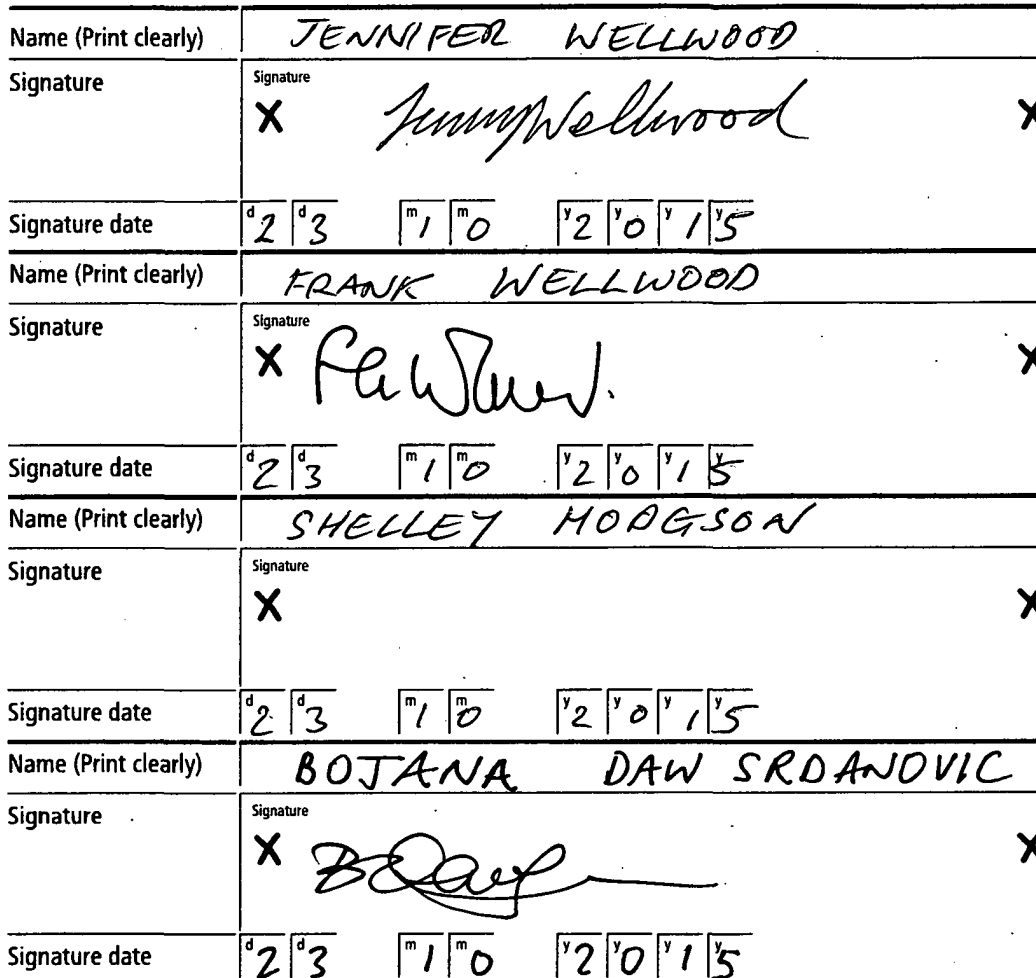 Name (Print clearly) JENNIFER WELLWOOD
Signature Signature
X Jenny Wellwood X
Signature date d2 d3 m1 m0 y2 y0 y1 y5
Name (Print clearly) FRANK WELLWOOD
Signature Signature
X X
Signature date d2 d3 m1 m0 y2 y0 y1 y5
Name (Print clearly) SHELLEY HODGSON
Signature Signature
X X
Signature date d2 d3 m1 m0 y2 y0 y1 y5
Name (Print clearly) BOJANA DAW SRDANOVIC
Signature Signature
X X
Signature date d2 d3 m1 m0 y2 y0 y1 y5